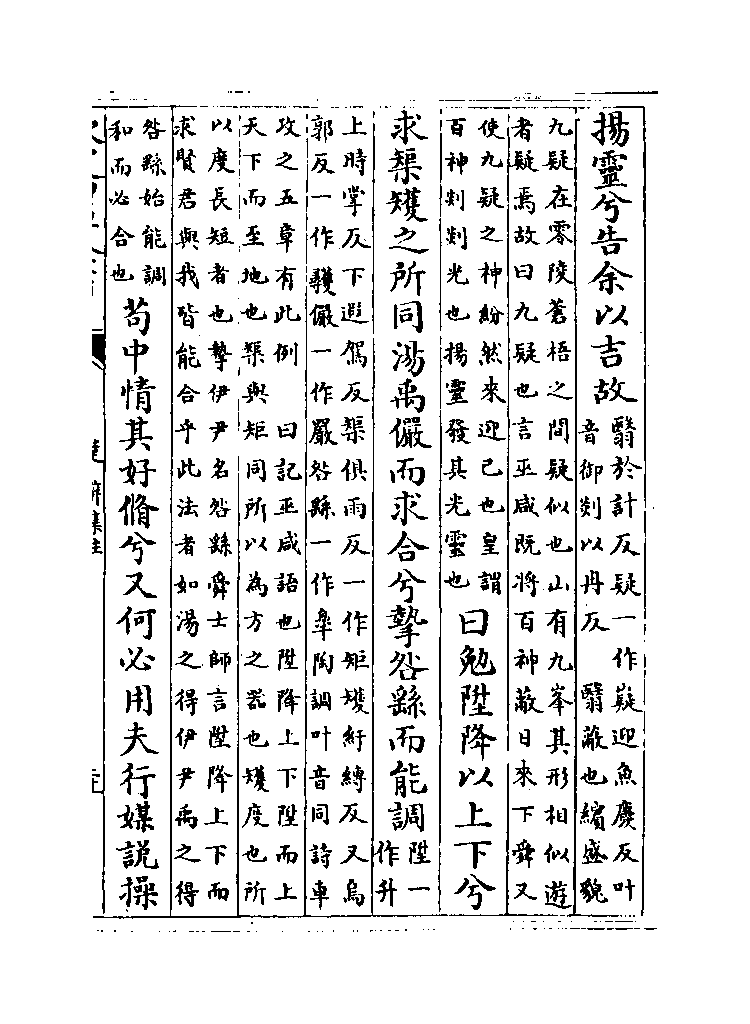 揚靈兮告余以吉故
翳於計反疑一作嶷迎魚慶反叶
音御剡以冉反　翳蔽也繽盛貌
九疑在零陵蒼梧之間疑似也山有九峯其形相似遊
者疑焉故曰九疑也言巫咸既將百神蔽日來下舜又
使九疑之神紛然來迎己也皇謂
百神剡剡光也揚靈發其光靈也
曰勉陞降以上下兮
求榘矱之所同湯禹儼而求合兮摯咎繇而能調
陞一
作升
上時掌反下遐駕反榘俱雨反一作矩矱紆縛反又烏
郭反一作彠儼一作嚴咎繇一作皐陶調叶音同詩車
攻之五章有此例　曰記巫咸語也陞降上下陞而上
天下而至地也榘與矩同所以為方之器也矱度也所
以度長短者也摯伊尹名咎繇舜士師言陞降上下而
求賢君與我皆能合乎此法者如湯之得伊尹禹之得
咎繇始能調
和而必合也
苟中情其好脩兮又何必用夫行媒說操
楚辭集注